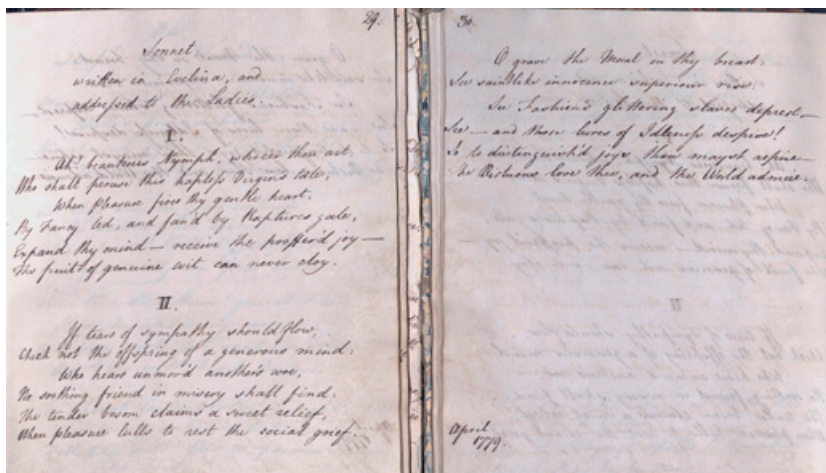 29.
Sonnet
written in Evelina, and
addressed to the Ladies.
I.
Ah! beauteous Nymph, whoe'er thou art,
Who shall peruse this hapless Virgins tale,
When pleasure fires thy gentle heart,
By Fancy led, and fan'd by Raptures gale,
Expand thy mind — receive the proffer'd joy —
The fruit of genuine wit can never cloy.
II.
If tears of sympathy should flow,
Check not the offspring of a generous mind:
Who hears unmov'd another's woe,
No soothing friend in misery shall find:
The tender bosom claims a sweet relief,
When pleasure lulls to rest the social grief.
30.
O grave the Moral on thy breast:
See saintlike innocence superiour rise:
See Fashion's glittering slaves deprest —
See — and those lures of Idleness despise!
So to distinguish'd joys thou mayst aspire —
The Virtuous love thee, and the World admire.
April
1779.